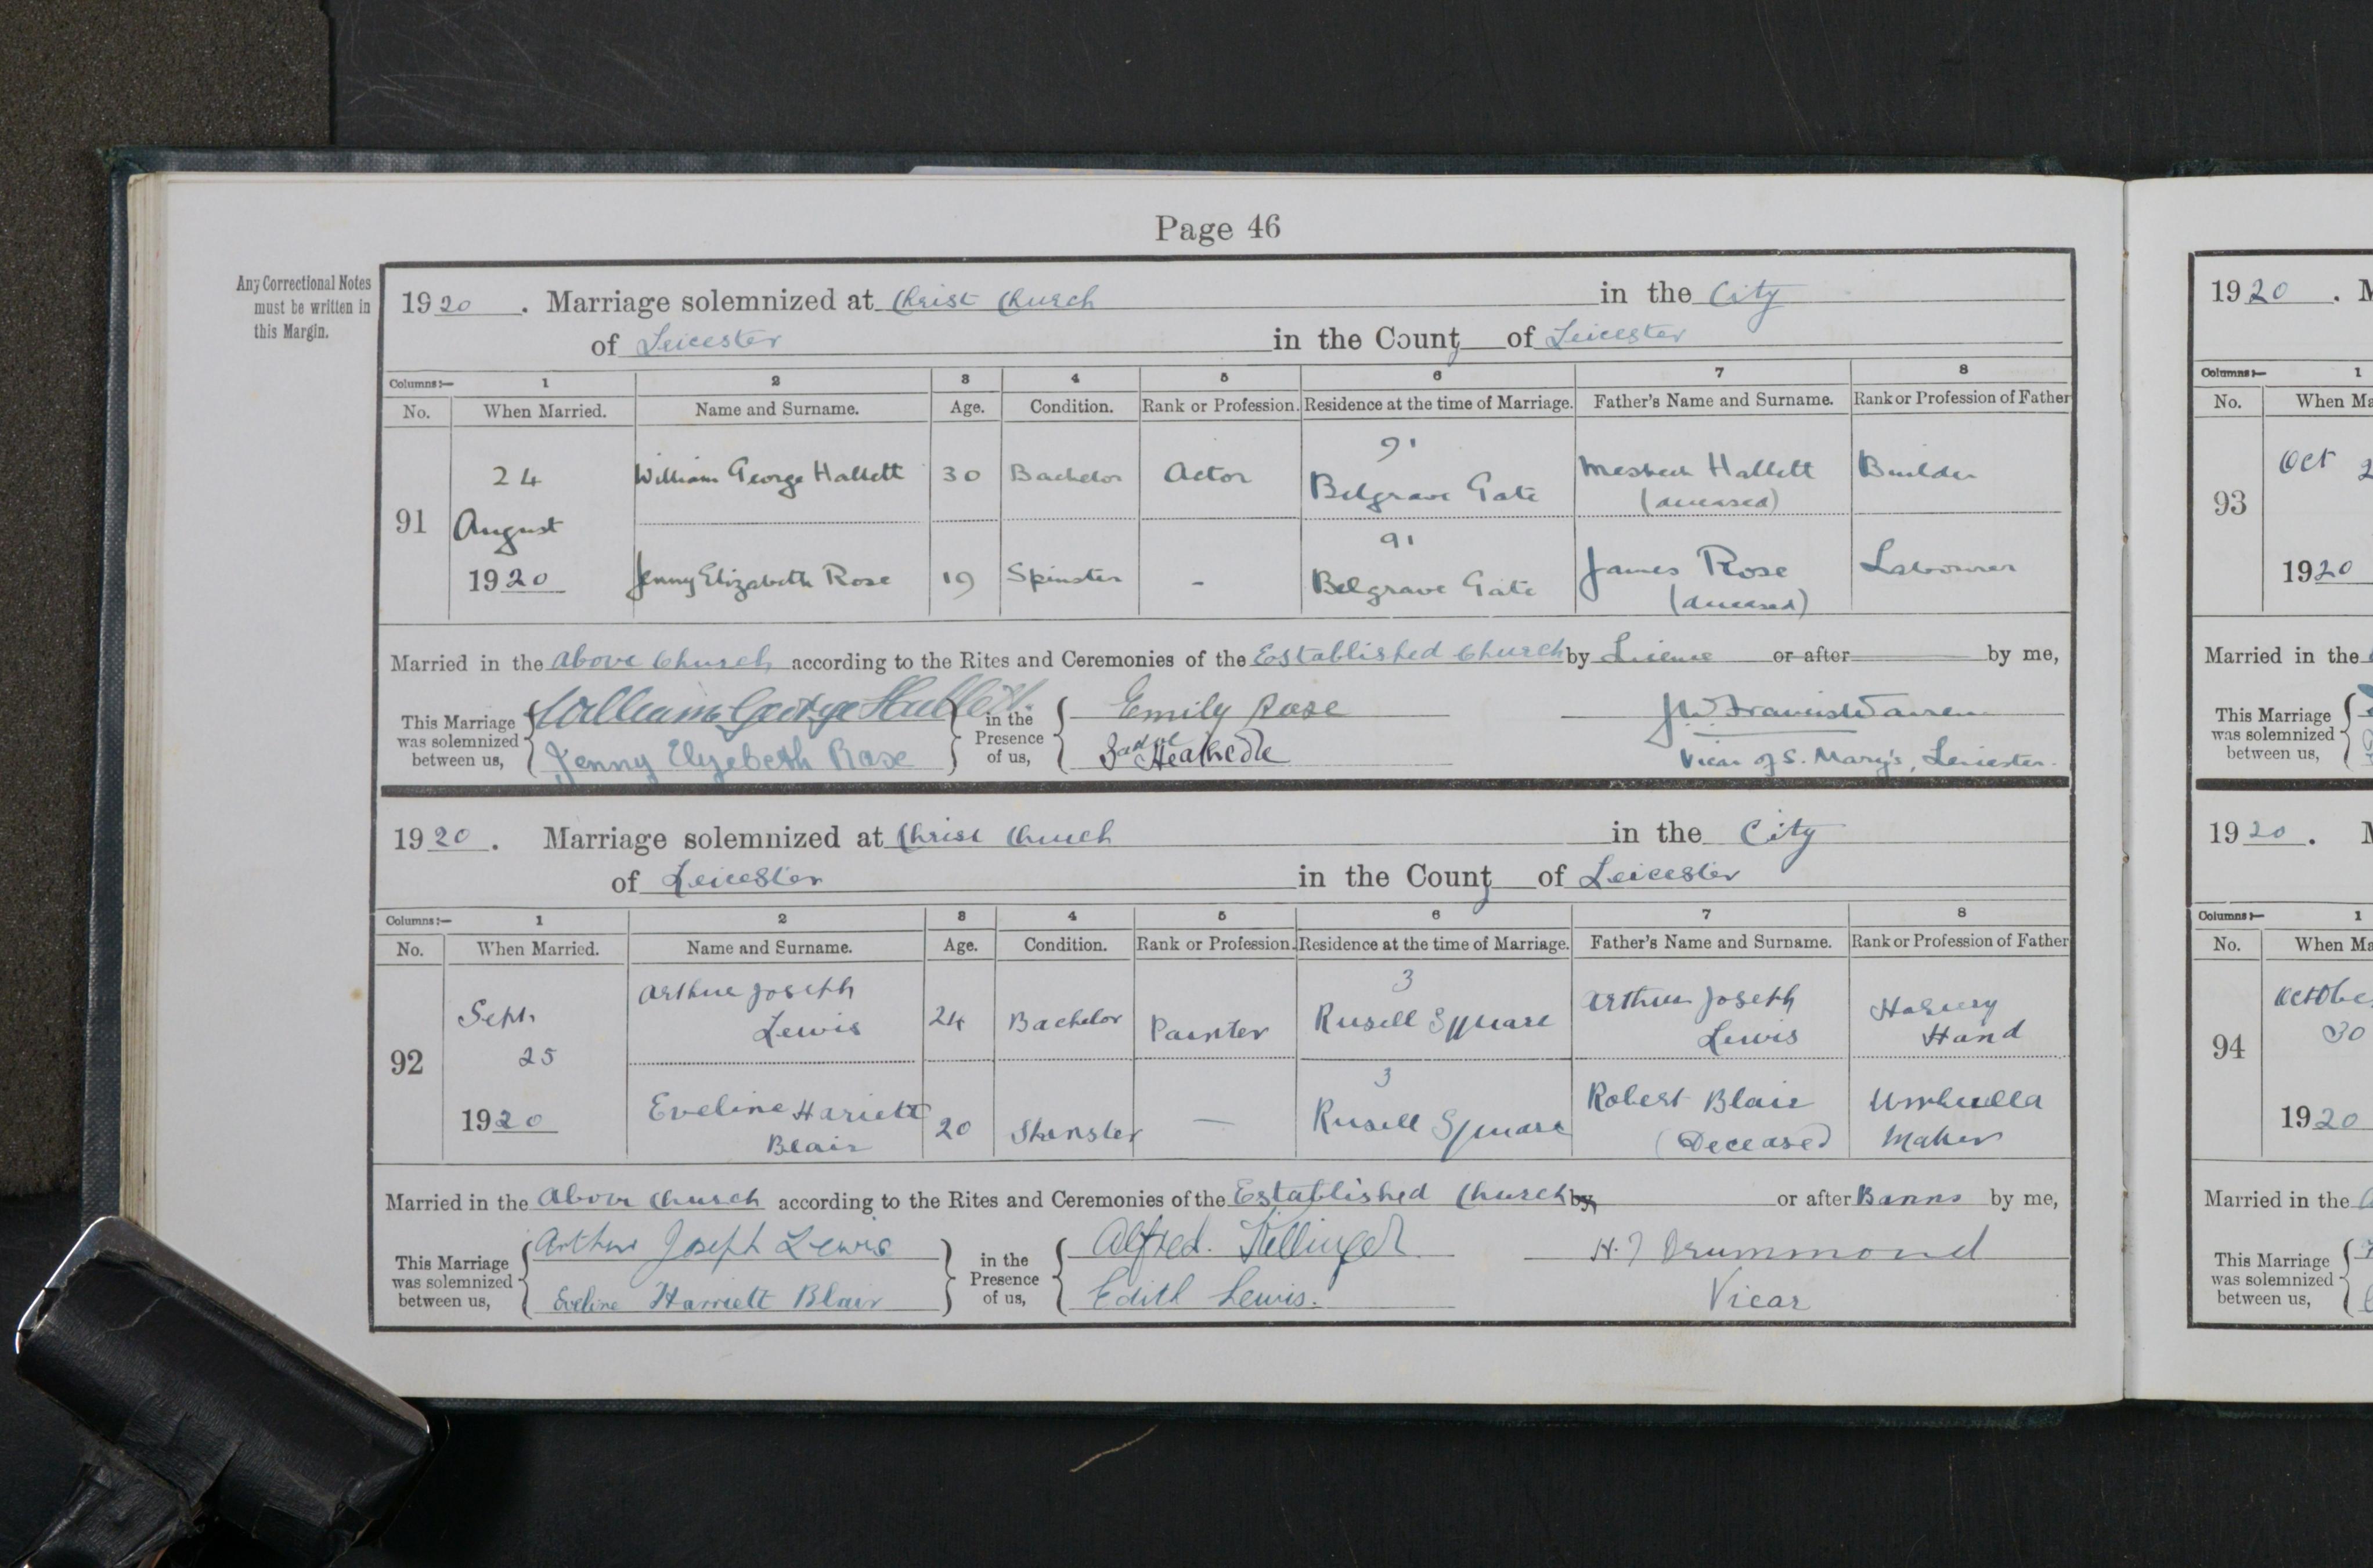 Page 46
Any Correctional Notes
must be written in
this Margin.
1920. Marriage solemnized at Christ Church in the City
of Leicester in the County of Leicester
Columns:— 1 2 3 4 5 6 7 8
No. When Married. Name and Surname. Age. Condition. Rank or Profession. Residence at the time of Marriage. Father's Name and Surname. Rank or Profession of Father
91
24 William George Hallett 30 Bachelor Actor Belgrave Gate Hallett Builder
(deceased)
91 August
91
1920 Jenny Elizabeth Rose 19 Spinster - Belgrave Gate James Rose Labourer
(deceased)
Married in the above Church according to the Rites and Ceremonies of the Established Church by Licence or after by me,
This Marriage
was solemnized
between us,
William George Hallett.
Jenny Elizebeth Rose
in the
Presence
of us,
Emily Rose
Vicar of S. Mary's, Leicester.
1920. Marriage solemnized at Christ Church in the City
of Leicester in the County of Leicester
Columns:— 1 2 3 4 5 6 7 8
No. When Married. Name and Surname. Age. Condition. Rank or Profession. Residence at the time of Marriage. Father's Name and Surname. Rank or Profession of Father
Arthur Joseph 3 Arthur Joseph Hosiery
Sept. Lewis 24 Bachelor Painter Rusell Square Lewis Hand
92 25
3
1920 Eveline Hariett 20 Spinster — Rusell Square Robert Blair Umbrella
Blair (Deceased) Maker
Married in the above Church according to the Rites and Ceremonies of the Established Church by or after Banns by me,
This Marriage
was solemnized
between us,
Arthur Joseph Lewis
Eveline Harriett Blair
in the
Presence
of us,
Alfred.
Edith Lewis.
H. J Drummond
Vicar
1920. M
Columns:— 1
No. When Ma
Oct 2
93
1920
Married in the
This Marriage
was solemnized
between us,
1920. M
Columns:— 1
No. When Ma
Octobe
30
94
1920
Married in the
This Marriage
was solemnized
between us,